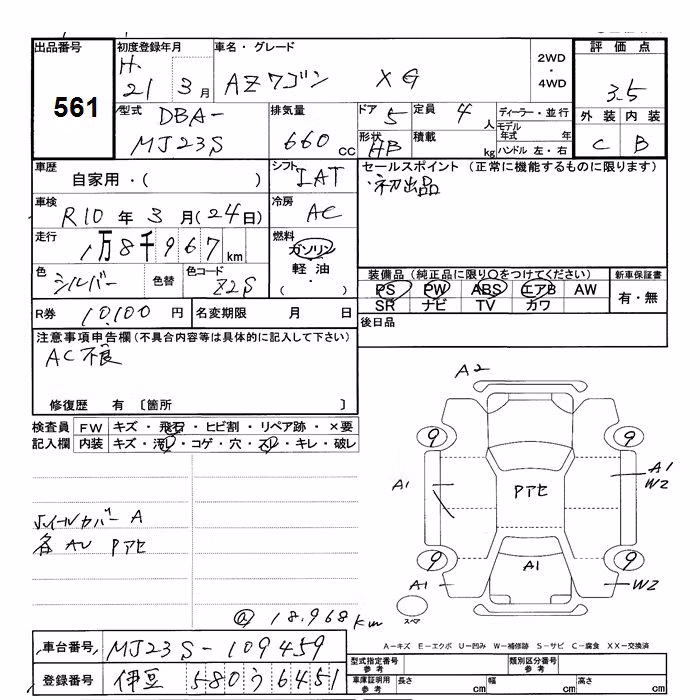 出品番号
561
初度登録年月
H.
21 3月
車名・グレード
AZワゴン XG
2WD
・
4WD
評価点
3.5
外装 内装
C B
型式 DBA-
MJ23S
排気量
660 cc
ドア 5
定員 4 人
形状 HB
積載 kg
ディーラー・並行
モデル年式 年
ハンドル 左・右
車歴
自家用・( )
シフト
IAT
車検
R10年3月(24日)
冷房
AC
走行
1万8千967km
燃料
ガソリン
軽油
( ・ )
色
シルバー
色替
色コード
Z2S
セールスポイント (正常に機能するものに限ります)
・初出品
装備品 (純正品に限り○をつけてください)
PS PW ABS エアB AW
SR ナビ TV カワ
新車保証書
有・無
R券 10,100 円
名変期限 月 日
後日品
注意事項申告欄(不具合内容等は具体的に記入して下さい)
AC不良
修復歴 有 〔箇所 〕
検査員 FW キズ・飛石・ヒビ割・リペア跡・×要
記入欄 内装 キズ・汚レ・コゲ・穴・スレ・キレ・破レ
ホイールカバー A
各AU Pアセ
@ 18,968km
A2
9 9
A1
Pアセ
A1
W2
9 9
A1
A1
W2
スペア
A-キズ E-エクボ U-凹み W-補修跡 S-サビ C-腐食 XX-交換済
車台番号 MJ23S-109459
登録番号 伊豆 580 う 6451
型式指定番号
参考
類別区分番号
参考
車庫証明用
参考
長さ cm 幅 cm 高さ cm